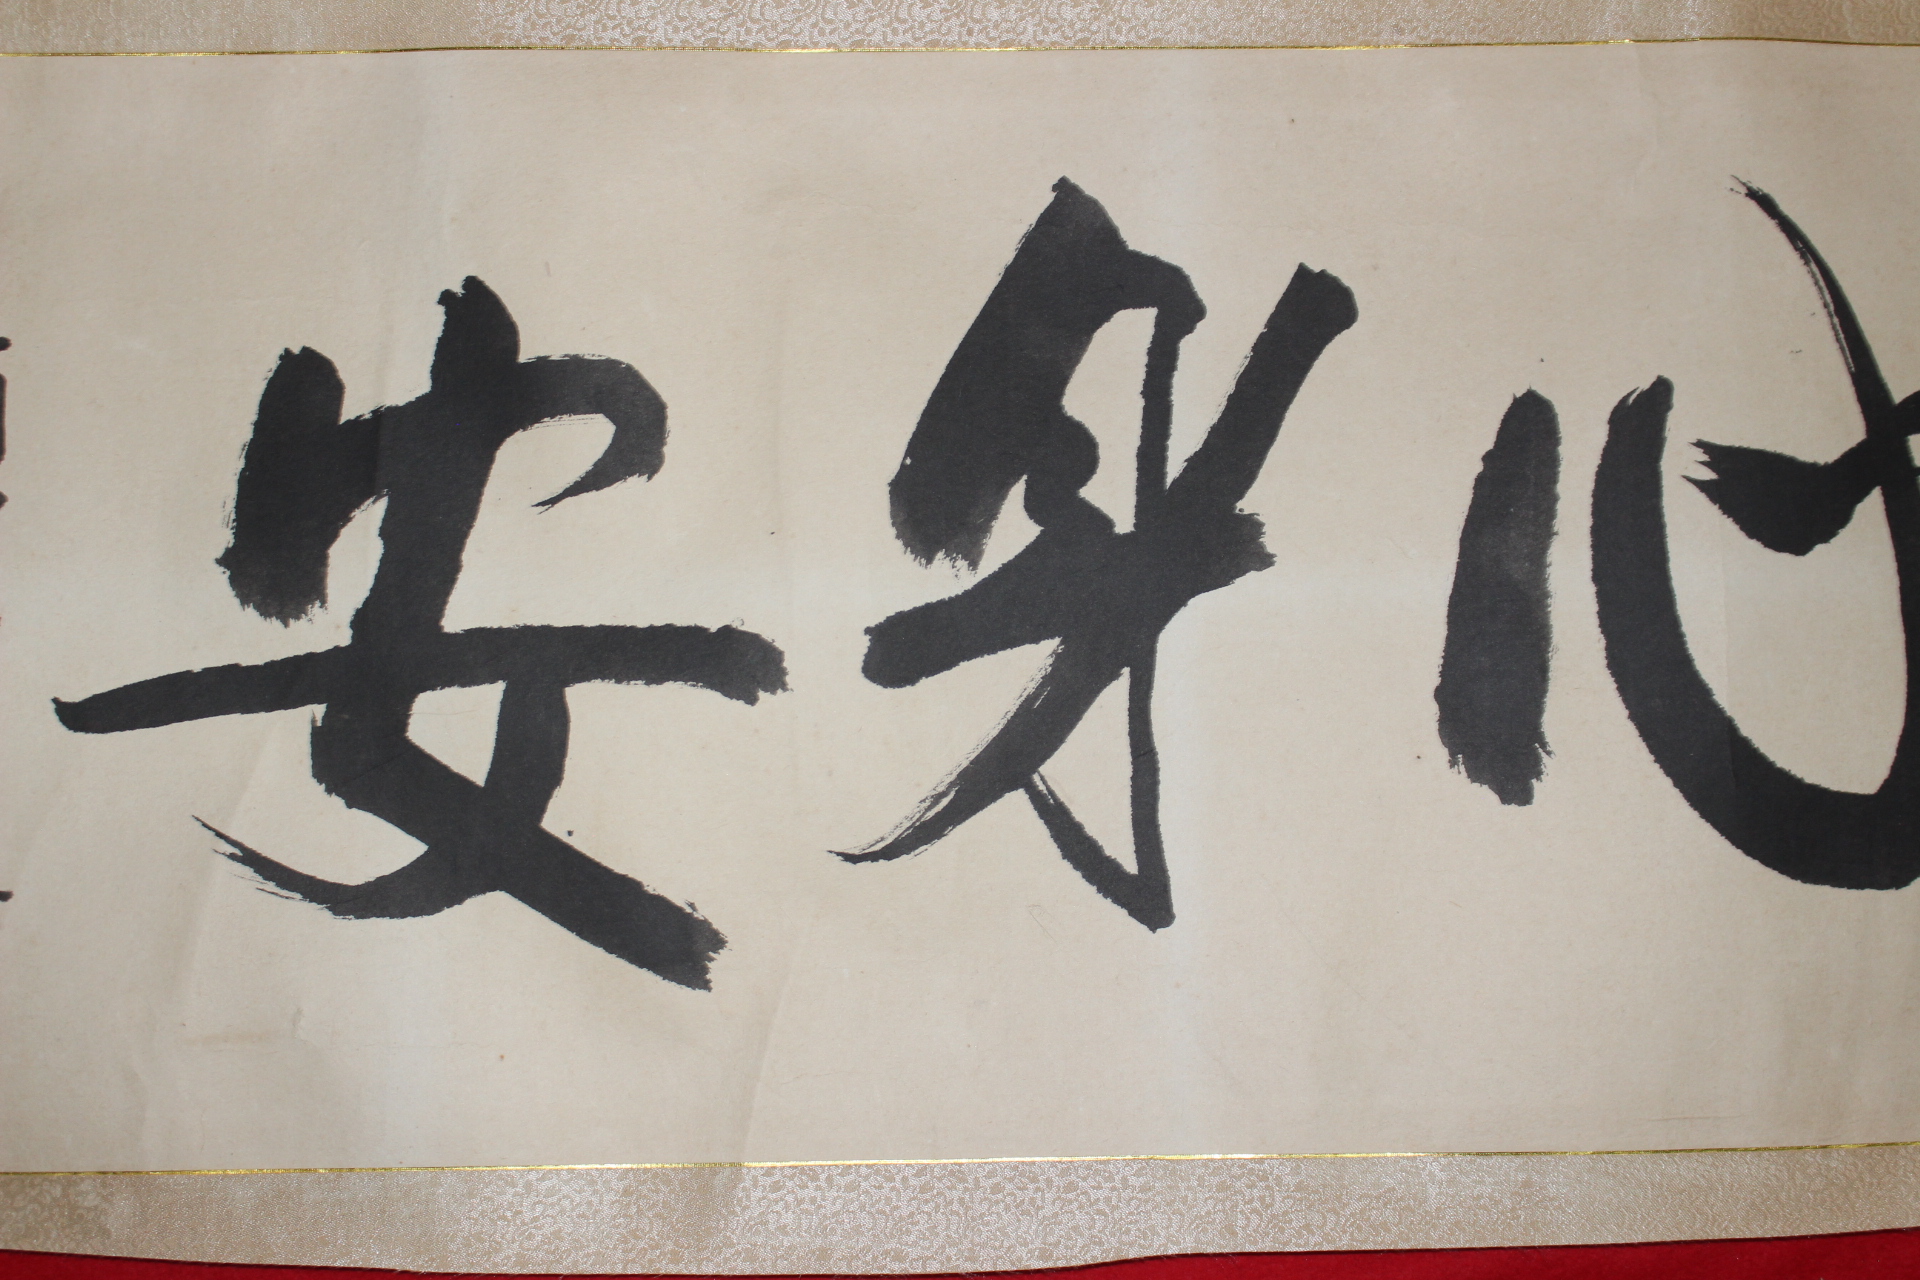 心身安